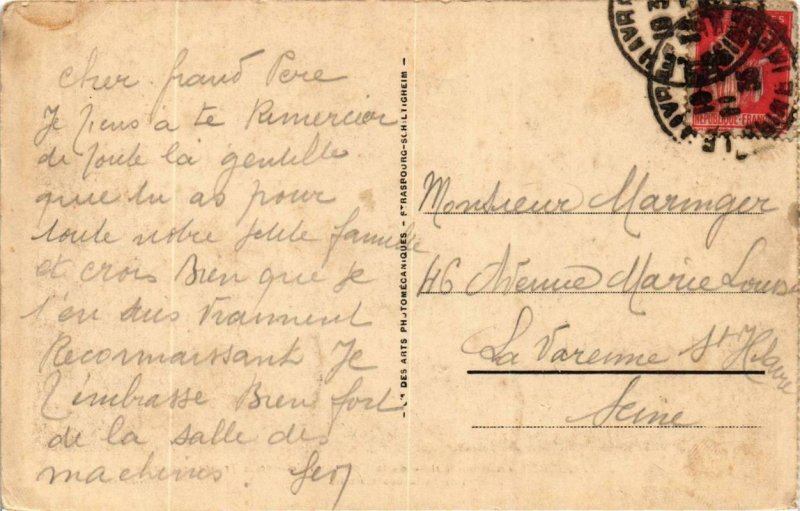 Cher grand Pere
Je tiens a te Remercier
de toute la gentille
que tu as pour
toute notre petite famille
et crois Bien que je
t'en suis vraiment
Reconnaissant Je
t'embrasse Bien fort
de la salle des
machines.
DES ARTS PHOTOMÉCANIQUES - STRASBOURG-SCHILTIGHEIM
REPUBLIQUE FRANC
LE HAVRE
Monsieur Maringer
46 Avenue Marie Louise
La Varenne St Hilaire
Seine